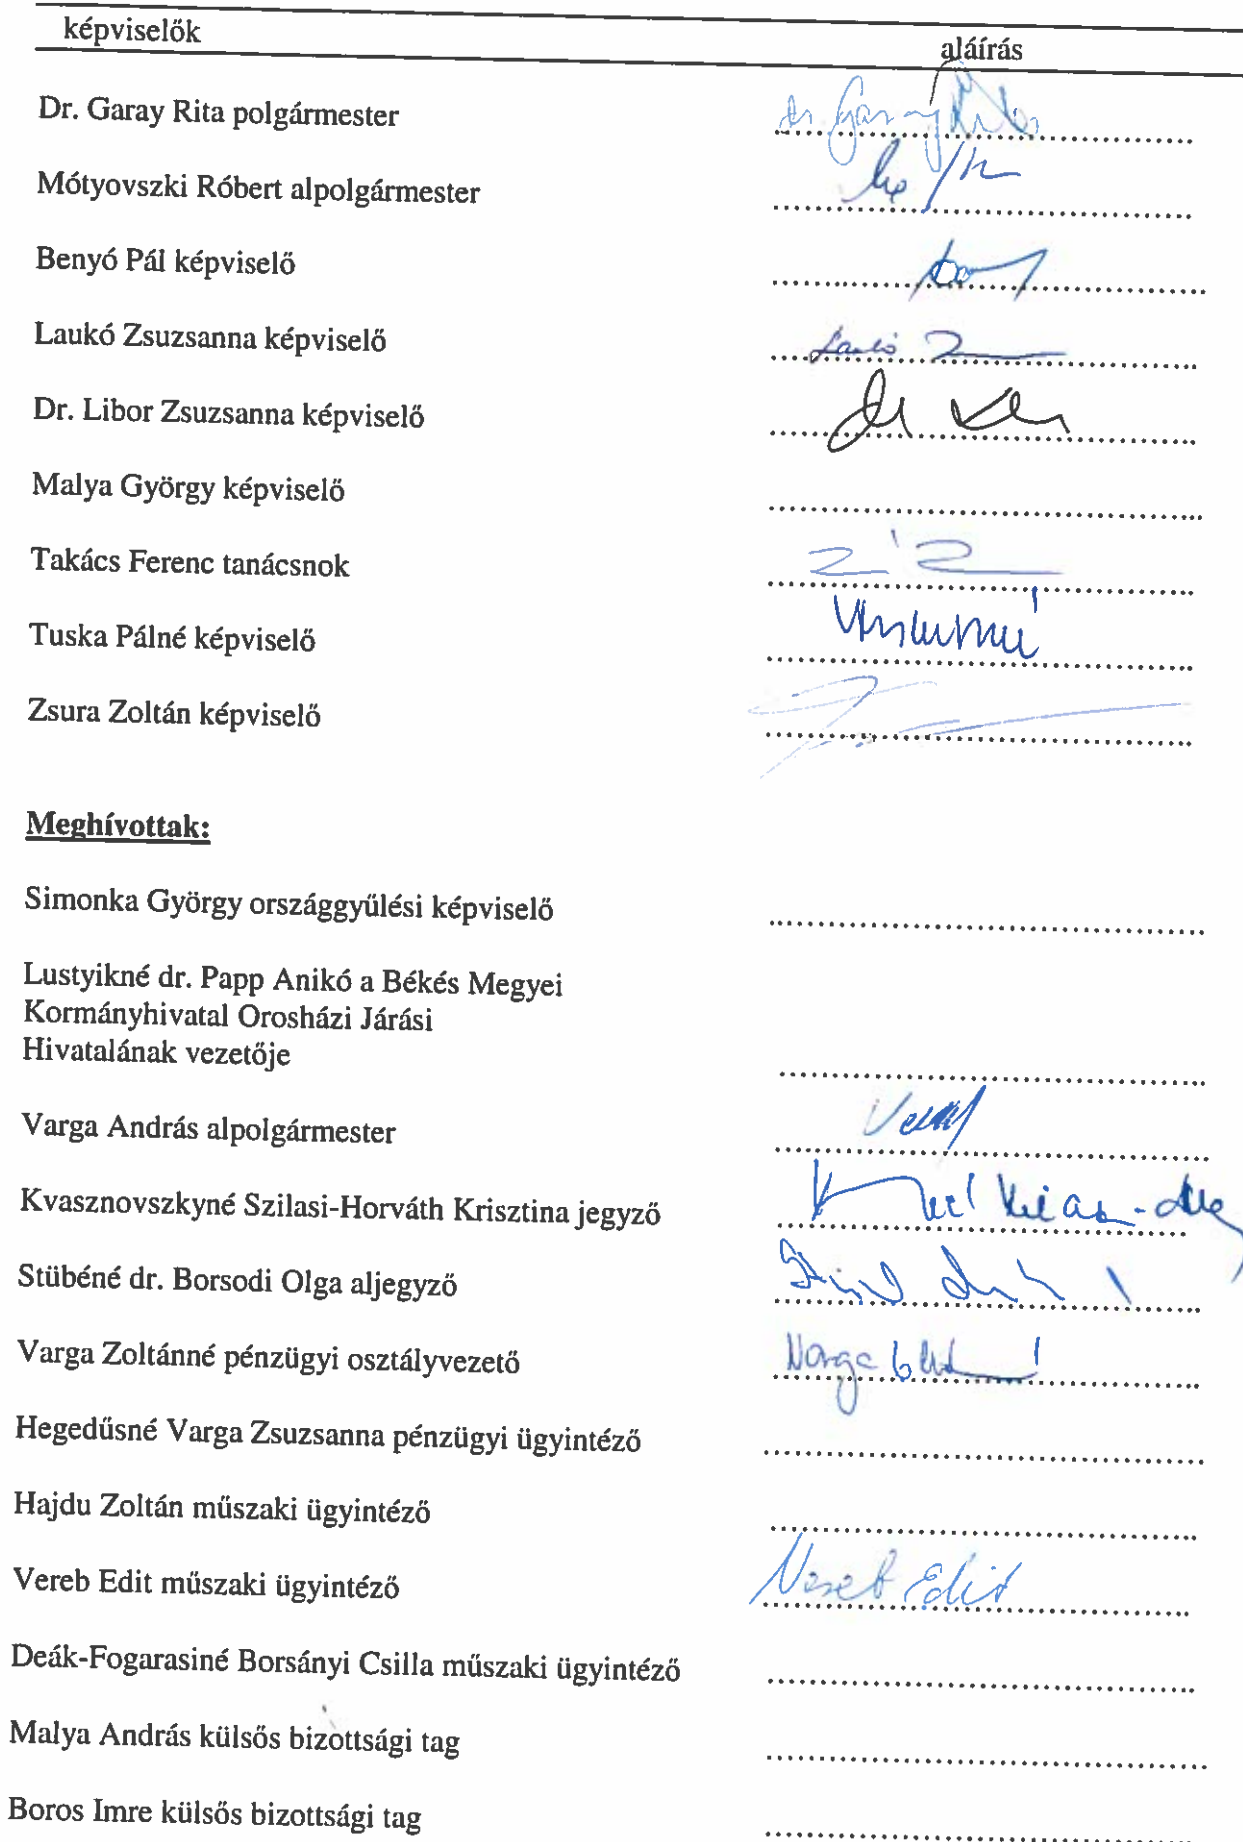 képviselők aláírás
Dr. Garay Rita polgármester dr Garay Rita
Mótyovszki Róbert alpolgármester
Benyó Pál képviselő
Laukó Zsuzsanna képviselő Laukó
Dr. Libor Zsuzsanna képviselő
Malya György képviselő
Takács Ferenc tanácsnok
Tuska Pálné képviselő
Zsura Zoltán képviselő
Meghívottak:
Simonka György országgyűlési képviselő
Lustyikné dr. Papp Anikó a Békés Megyei
Kormányhivatal Orosházi Járási
Hivatalának vezetője
Varga András alpolgármester
Kvasznovszkyné Szilasi-Horváth Krisztina jegyző
Stübéné dr. Borsodi Olga aljegyző
Varga Zoltánné pénzügyi osztályvezető Varga
Hegedűsné Varga Zsuzsanna pénzügyi ügyintéző
Hajdu Zoltán műszaki ügyintéző
Vereb Edit műszaki ügyintéző Vereb Edit
Deák-Fogarasiné Borsányi Csilla műszaki ügyintéző
Malya András külsős bizottsági tag
Boros Imre külsős bizottsági tag